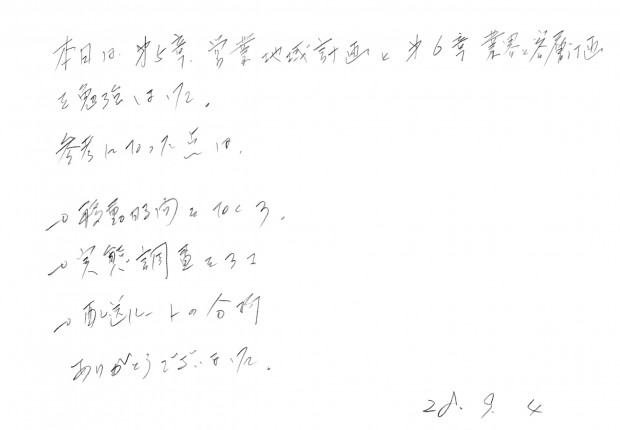 本日は、第5章、営業地域計画と第6章 業界と客層計画
を勉強しました。
参考になった点は、
→移動時間をなくす。
→実態調査をする
→配送ルートの分析
ありがとうございました。
28. 9. 4